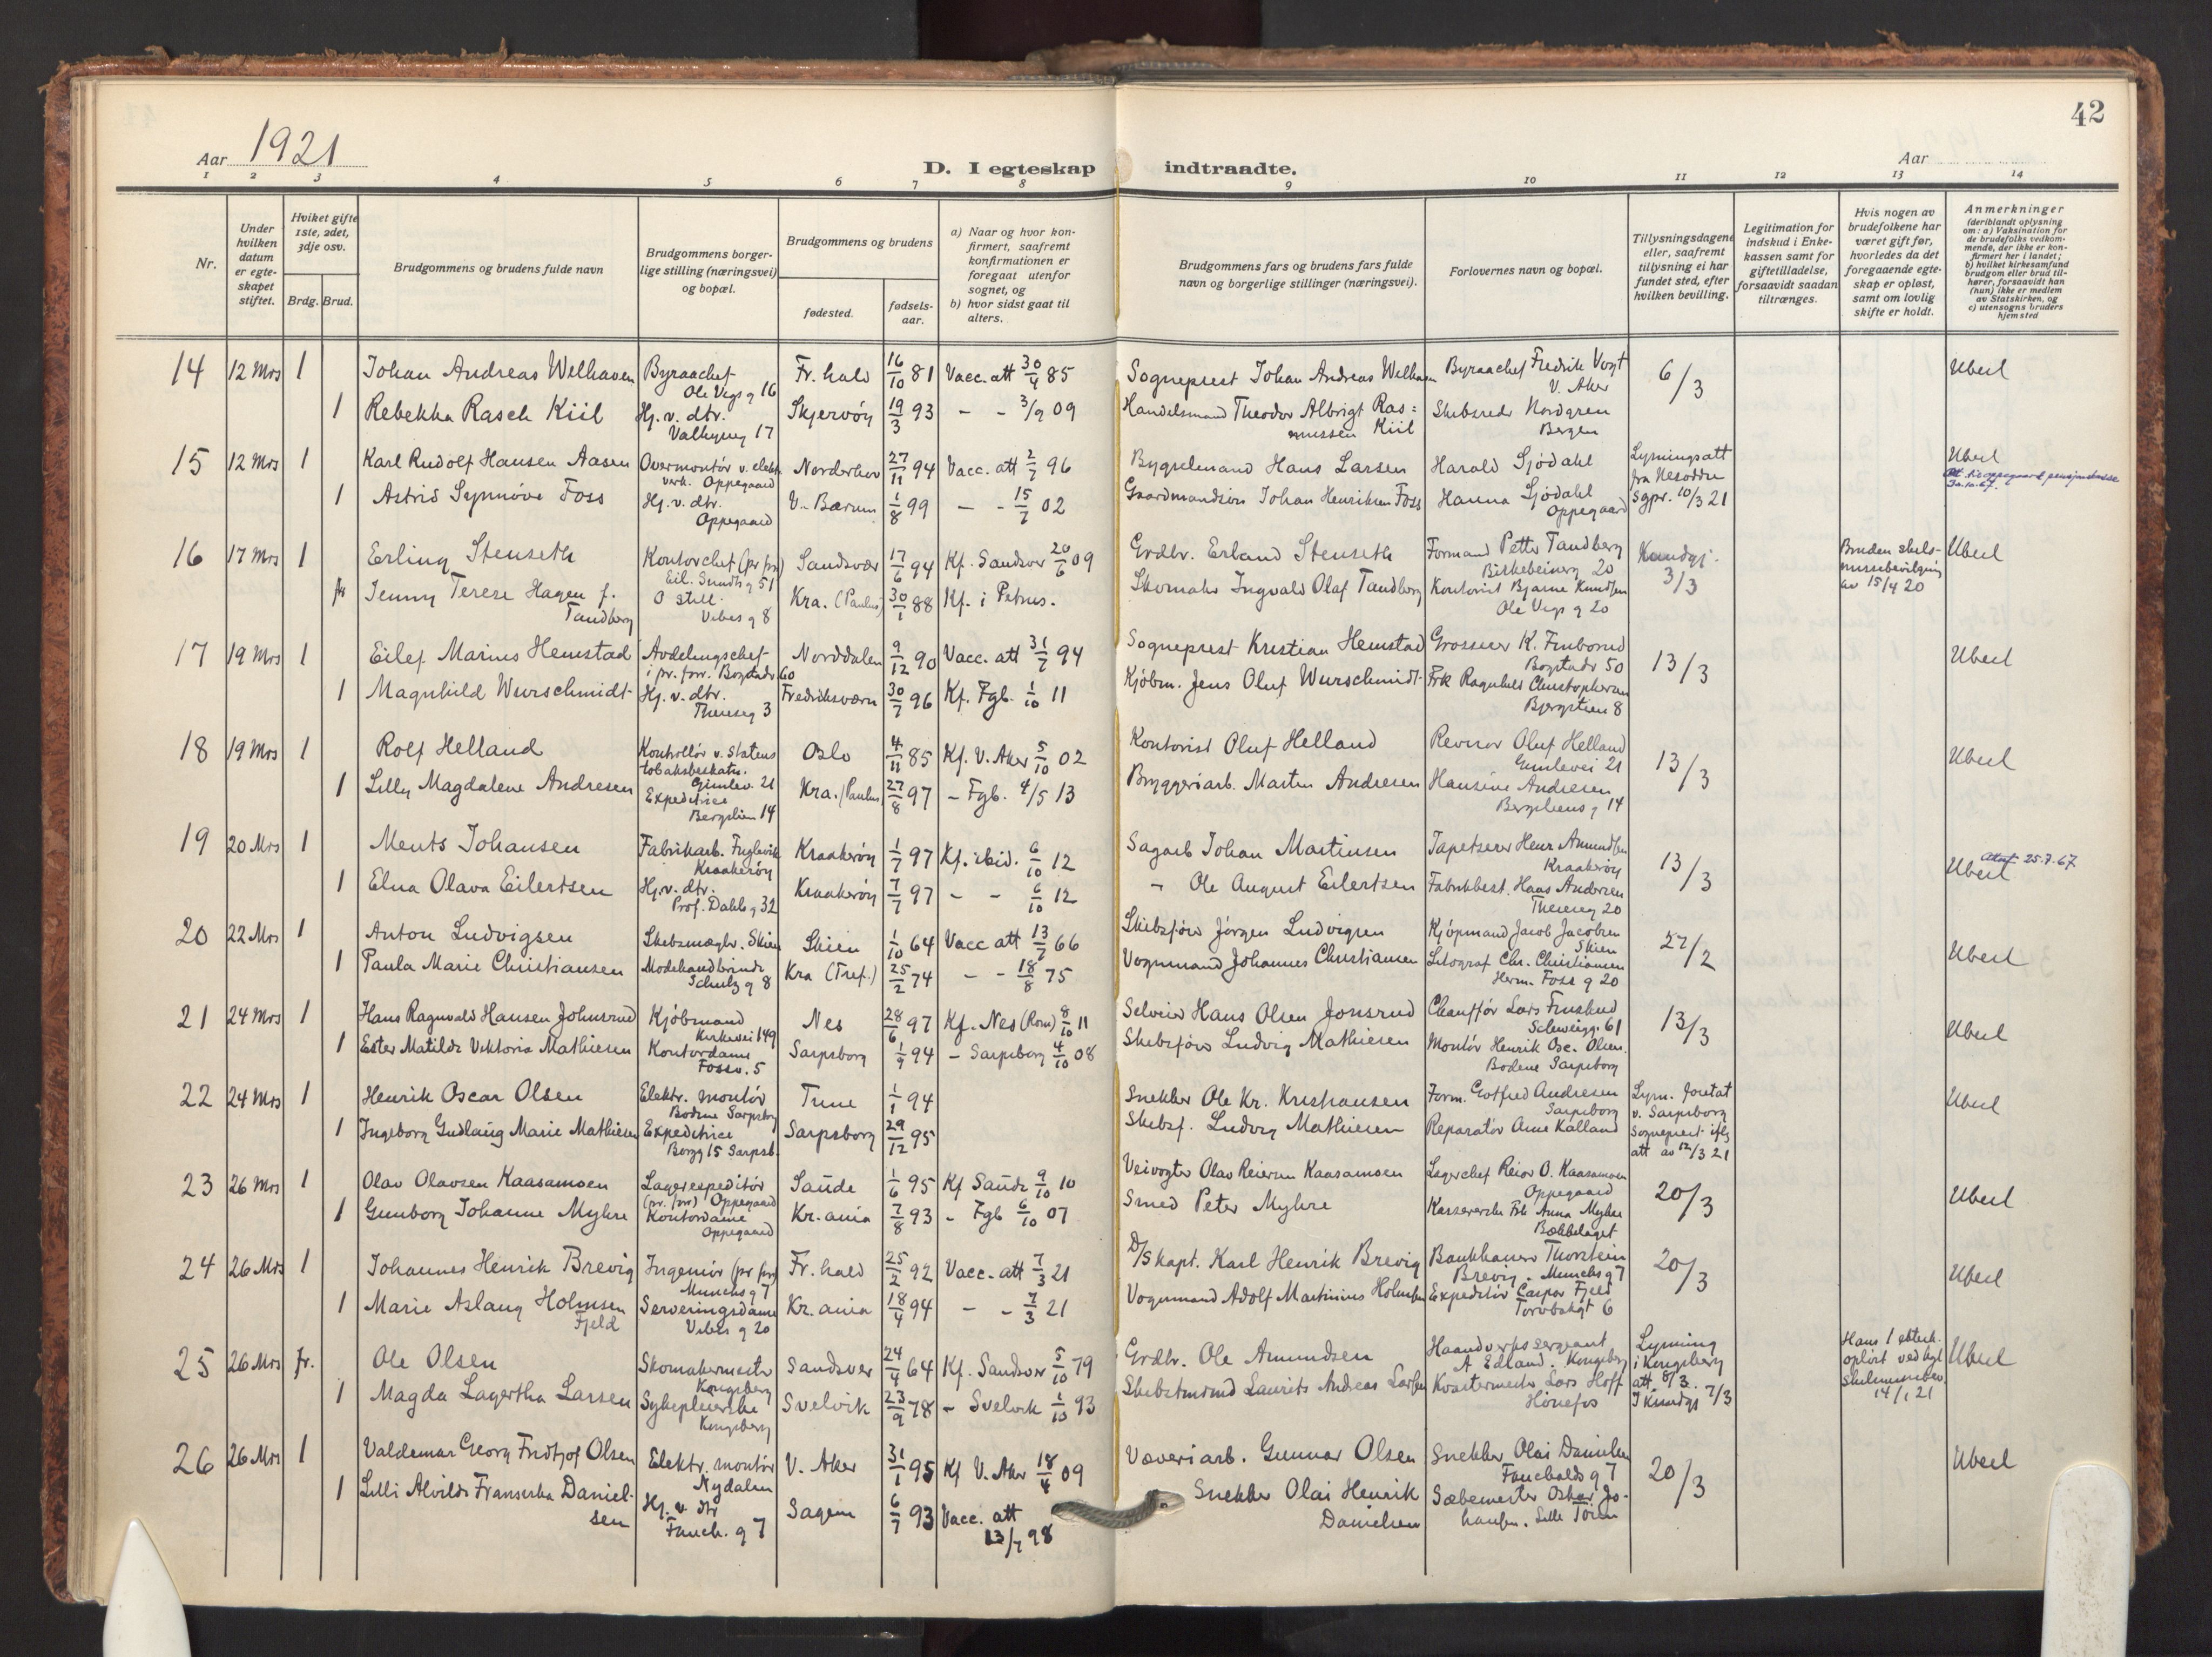 42
Aar 1921
D. I egteskap indtraadte.
Aar
1 2 3 4 5 6 7 8 9 10 11 12 13 14
Nr.
Under hvilken datum er egteskapet stiftet.
Hviket gifte 1ste, 2det, 3dje osv.
Brdg. Brud.
Brudgommens og brudens fulde navn
Brudgommens borgerlige stilling (næringsvei) og bopæl.
Brudgommens og brudens
fødested.
fødselsaar.
a) Naar og hvor konfirmert, saafremt konfirmationen er foregaat utenfor sognet, og
b) hvor sidst gaat til alters.
Brudgommens fars og brudens fars fulde navn og borgerlige stillinger (næringsvei).
Forlovernes navn og bopæl.
Tillysningsdagene eller, saafremt tillysning ei har fundet sted, efter hvilken bevilling.
Legitimation for indskud i Enkekassen samt for giftetilladelse, forsaavidt saadan tiltrænges.
Hvis nogen av brudefolkene har været gift før, hvorledes da det foregaaende egteskap er opløst, samt om lovlig skifte er holdt.
Anmerkninger
(deriblandt oplysning om: a) Vaksination for de brudefolks vedkommende, der ikke er konfirmert her i landet; b) hvilket kirkesamfund brudgom eller brud tilhører, forsaavidt han (hun) ikke er medlem av Statskirken, og c) utensogns bruders hjemsted
14 12 Mrs 1 Johan Andreas Welhaven Byraachef Ole Vigs g 16 Fr.hald 16/10 81 Vacc. att 30/4 85 Sogneprest Johan Andreas Welhaven Byraachef Fredrik Vogt V. Aker 6/3 Uberl
1 Rebekka Rasch Kiil Hj. v. dtr. Valkyrieg 17 Skjervøy 19/3 93 – – 3/9 09 Handelsmand Theodor Albrigt Rasmussen Kiil Skibsreder Nordgren Bergen
15 12 Mrs 1 Karl Rudolf Hansen Aasen Overmontør v. elektr. verk. Oppegaard Norderhov 27/11 94 Vacc. att 2/7 96 Bygselmand Hans Larsen Harald Sjödahl Lysningsatt fra Nesodden sgpr. 10/3 21 Uberl
1 Astrid Synnöve Foss Hj. v. dtr. Oppegaard V. Bærum 1/8 99 – – 15/7 02 Gaardmandsön Johan Henriksen Foss Hanna Sjödahl Oppegaard
16 17 Mrs 1 Erling Stenseth Kontorchef (pr. frr) Eil. Sundts g 51 Sandsvær 17/6 94 Kf. Sandsver 20/6 09 Grdbr. Erland Stenseth Formand Petter Tandberg Birkebeinerg 20 Kundgj. 3/3 Bruden skilsmissebevilgning av 15/4 20 Uberl
fr Jenny Terese Hagen f. Tandberg O still. Vibes g 8 Kra. (Paulus) 30/1 88 Kf. i Petrus. Skomaker Ingvald Olaf Tandberg Kontorist Bjarne Knudsen Ole Vigs g 20
17 19 Mrs 1 Eilef Marius Hemstad Avdelingschef i pr. forr. Bogstadv 60 Norddalen 9/12 90 Vacc. att 31/7 94 Sogneprest Kristian Hemstad Grosserer K. Finborud Bogstadv 50 13/3 Uberl
1 Magnhild Wurschmidt Hj. v. dtr. Thereseg 3 Fredriksværn 30/7 96 Kf. Fgb. 1/10 11 Kjöbm. Jens Oluf Wurschmidt Frk Ragnhild Christophersen Bjergstien 8
18 19 Mrs 1 Rolf Helland Kontrollör v. Statens tobaksbeskatn. Gimlev. 21 Oslo 4/11 85 Kf. V. Aker 5/10 02 Kontorist Oluf Helland Revisor Oluf Helland Gimlevei 21 13/3 Uberl
1 Lilly Magdalene Andresen Expeditrice Bergslien 14 Kra. (Paulus) 27/8 97 – Fgb. 4/5 13 Bryggeriarb. Martin Andresen Hansine Andresen Bergsliens g 14
19 20 Mrs 1 Ments Johansen Fabrikarb. Fuglevik Kraakerøy Kraakerøy 1/7 97 Kf. ibid. 6/10 12 Sagarb Johan Martinsen Tapetserer Henr Amundsen Kraakerøy 13/3 Uberl Attest 25.7.67
1 Elna Olava Eilertsen Hj. v. dtr. Prof. Dahls g 32 Kraakerøy 7/7 97 – – 6/10 12 – Ole August Eilertsen Fabrikbest. Hans Andersen Thereseg 20
20 22 Mrs 1 Anton Ludvigsen Skibsmægler. Skien Skien 1/10 64 Vacc att 13/7 66 Skibsförer Jörgen Ludvigsen Kjöpmand Jacob Jacobsen Skien 27/2 Uberl
1 Paula Marie Christiansen Modehandlerinde Schultz g 8 Kra (Tref.) 25/2 74 – – 18/8 75 Vognmand Johannes Christiansen Litograf Chr. Christiansen Herm. Foss g 20
21 24 Mrs 1 Hans Ragnvald Hansen Johnsrud Kjöbmand Kirkevei 149 Nes 28/6 97 Kf. Nes (Rom) 8/10 11 Selveier Hans Olsen Jonsrud Chauffør Lars Fruslund Schweigg. 61 13/3 Uberl
1 Ester Matilde Viktoria Mathiesen Kontordame Fossv. 5 Sarpsborg 1/9 94 – Sarpsborg 4/10 08 Skibsförer Ludvig Mathiesen Montör Henrik Osc. Olsen. Bodene Sarpsborg
22 24 Mrs 1 Henrik Oscar Olsen Elektr. montör Bodene Sarpsborg Tune 1/1 94 Snekker Ole Kr. Kristiansen Form. Gotfred Andresen Sarpsborg Lysn. foretat v. Sarpsborg Sogneprest iflg att av 12/3 21 Uberl
1 Ingeborg Gudlaug Marie Mathiesen Expeditrice Borgg 15 Sarpsb. Sarpsborg 29/12 95 Skibsf. Ludvig Mathiesen Reparatör Arne Kalland
23 26 Mrs 1 Olav Olavsen Kaasamoen Lagerexpeditör (pr. frr) Oppegaard Saude 1/6 95 Kf Saude 9/10 10 Veivogter Olav Reiersen Kaasamoen Lagerchef Reior O. Kaasamoen Oppegaard 20/3 Uberl
1 Gunborg Johanne Myhre Kontordame Oppegaard Kr.ania 7/8 93 – Fgb 6/10 07 Smed Peter Myhre Kassererske Frk Anna Myhre Bækkelaget
24 26 Mrs 1 Johannes Henrik Brevig Ingeniør (pr frr) Munchs g 7 Fr.hald 25/2 92 Vacc. att 7/3 21 D/S kapt. Karl Henrik Brevig Bankkaserer Thorstein Brevig. Munchs g 7 20/3 Uberl
1 Marie Aslaug Holmsen Fjeld Serveringsdame Vibes g 20 Kr.ania 18/4 94 – – 7/3 21 Vognmand Adolf Martinius Holmsen Expeditör Caspar Fjeld Torvbakgt 6
25 26 Mrs fr. Ole Olsen Skomakermester Kongsberg Sandsver 24/4 64 Kf. Sandsver 5/10 79 Grdbr. Ole Amundsen Haandverkssergeant A. Edland. Kongsberg Lysning i Kongsberg att. 8/3. I Kundgj 7/3 Hans 1 ektesk. oplöst ved kgl Skilsmissebev. 14/1 21 Uberl
1 Magda Lagertha Larsen Sykepleierske Kongsberg Svelvik 23/9 78 – Svelvik 1/10 93 Skibstmrmd Laurits Andreas Larsen Kvartermester Lars Hoff Hönefos
26 26 Mrs 1 Valdemar Georg Fridtjof Olsen Elektr. montör Nydalen V. Aker 31/1 95 Kf V. Aker 18/4 09 Væveriarb. Gunnar Olsen Snekker Olai Danielsen Fauchalds g 7 20/3 Uberl
1 Lilli Alvilde Franseska Danielsen Hj. v. dtr Fauch. g 7 Sagene 6/7 93 Vacc. att 13/7 98 Snekker Olai Henrik Danielsen Sæbemester Oskar Johansen. Lille Tøien